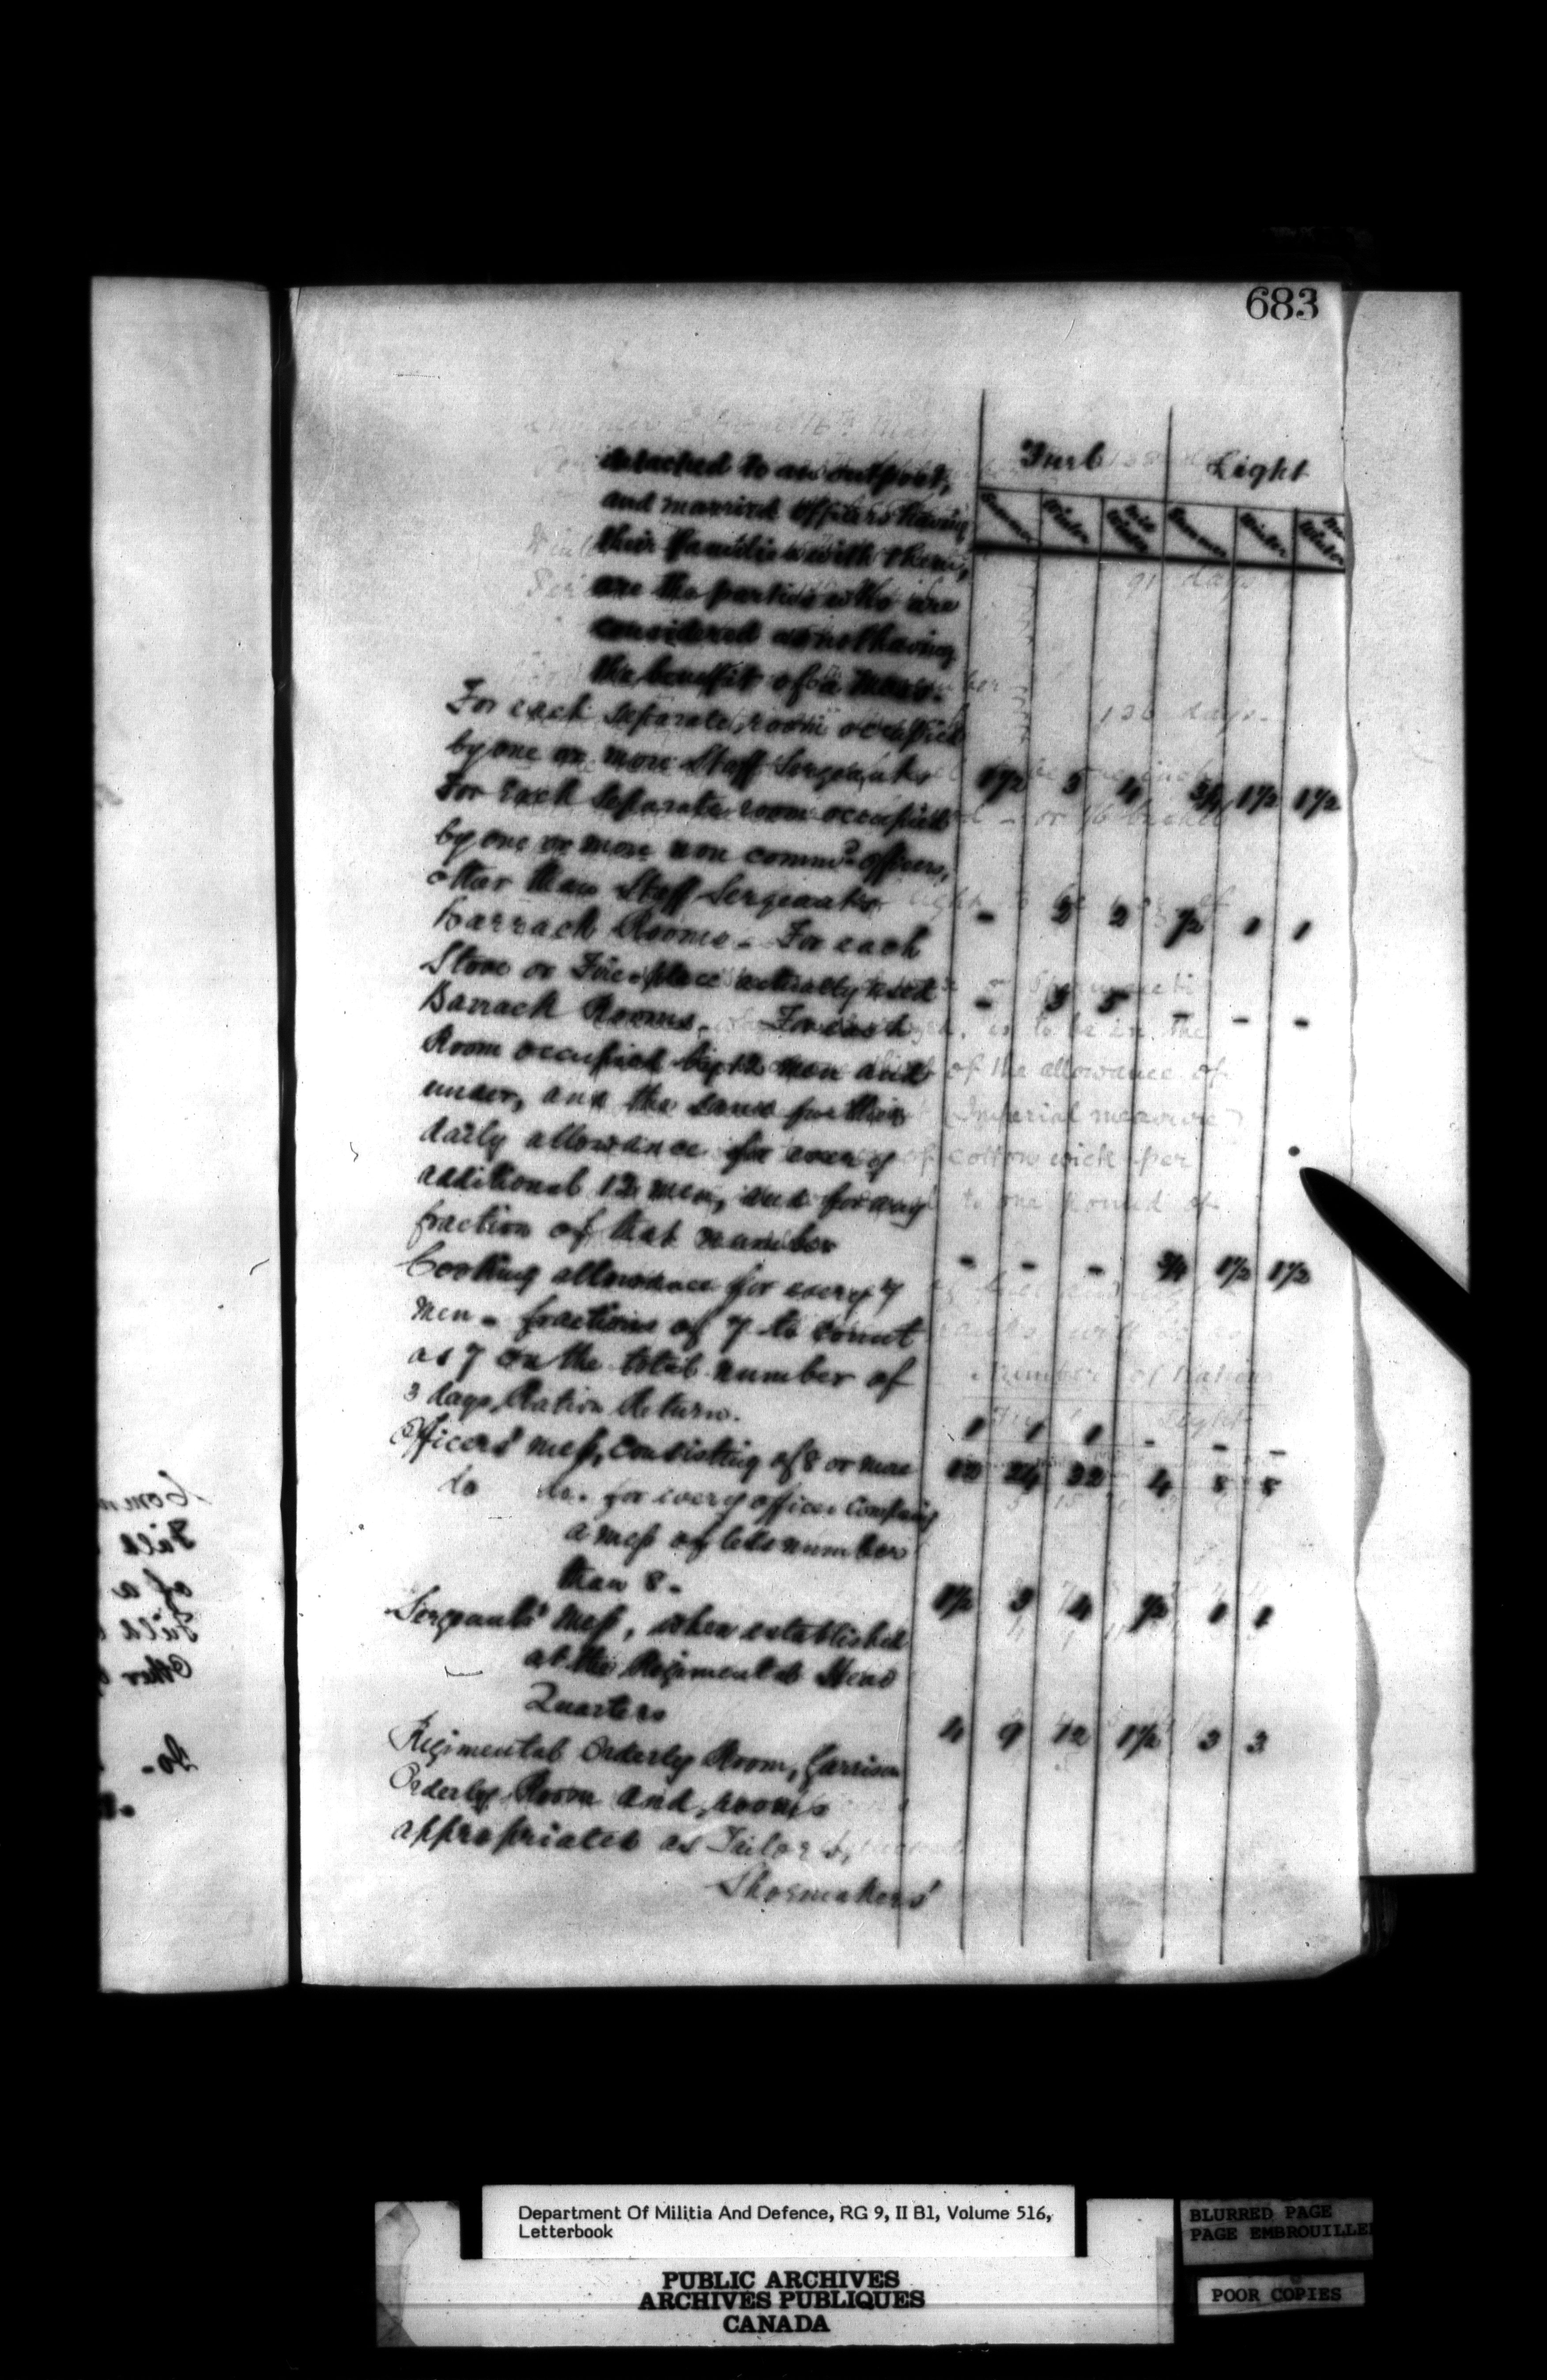 683
Fuel Light
Summer Winter Mid Winter Summer Winter Mid Winter
detached to an outpost,
and married officers having
their families with them,
are the parties who are
considered as not having
the benefit of a Mess.
For each separate room occupied
by one or more Staff Sergeants 1½ 3 4 ¾ 1½ 1½
For each separate room occupied
by one or more non commd officers,
other than Staff Sergeants - 2 2 ½ 1 1
Barrack Rooms. For each
Stove or Fire place actually used - 3 5 - - -
Barrack Rooms. For each
Room occupied by 12 men and
under, and the same further
daily allowance for every
additional 12 men, and for any
fraction of that number - - - ¾ 1½ 1½
Cooking allowance for every 7
men - fractions of 7 to count
as 7 on the total number of
3 days Ration Return. 1 1 1 - - -
Officers' mess, consisting of 8 or more 24 32 4 8 8
do do. for every officer composing
a mess of less number
than 8. 1½ 3 4 ½ 1 1
Sergeants' Mess, when established
at the Regimental Head
Quarters 4 9 12 1½ 3 3
Regimental Orderly Room, Garrison
Orderly Room and rooms
appropriated as Tailors,
Shoemakers'
Department Of Militia And Defence, RG 9, II B1, Volume 516,
Letterbook
PUBLIC ARCHIVES
ARCHIVES PUBLIQUES
CANADA
BLURRED PAGE
PAGE EMBROUILLEE
POOR COPIES